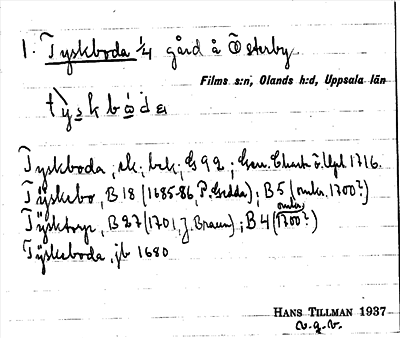 1. Tyskboda 1/4 gård å Österby
Films s:n, Olands h:d, Uppsala län
Tyskboda, sk, bek; G 92; Gen. Charta ö. Upl 1716.
Tÿskebo, B 18 (1685-86, P. Gedda); B 5 (omkr. 1700?)
Tÿsktorp, B 27 (1701, J. Braun); B 4 (omkr. 1700?)
Tÿskeboda, jb 1680
HANS TILLMAN 1937